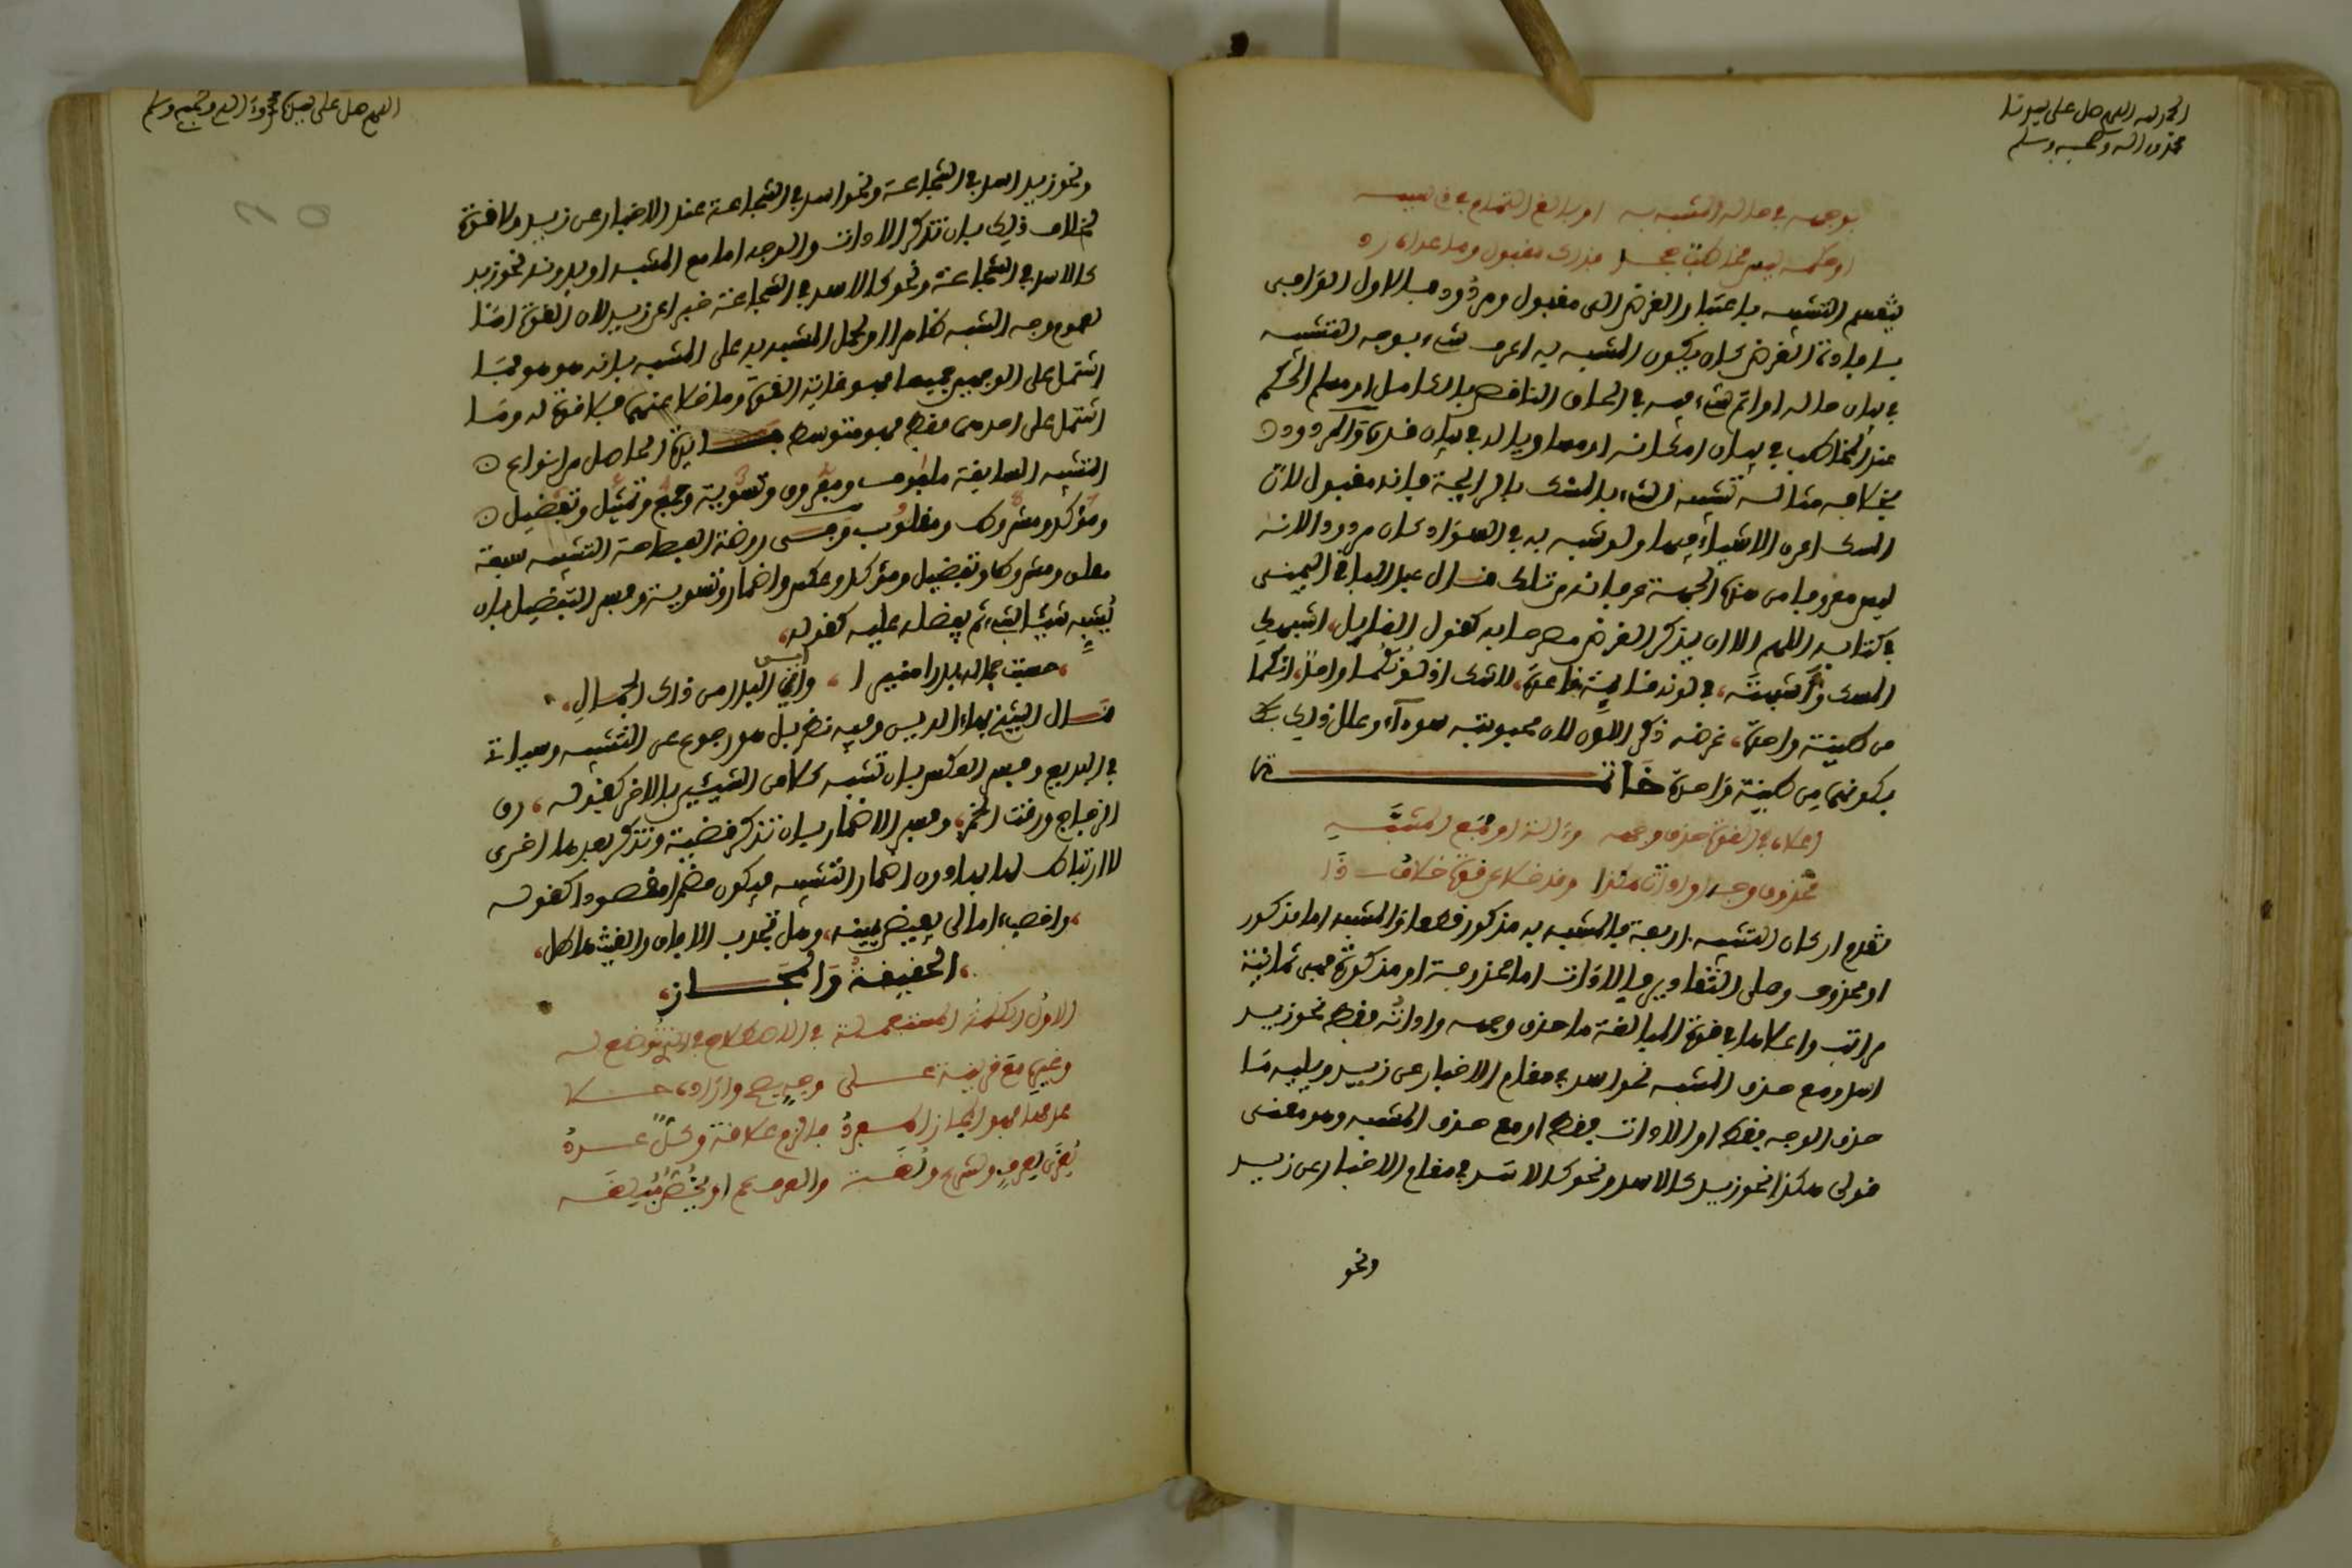 الحمد لله اللهم صل على سيدنا
محمد وآله وصحبه وسلم
بوجهه في حالة المشبه به او بالغ التمام في قاسيه
او حكمه لدى مخاطب بذاك مقبول وما عداه رد
ينقسم التشبيه باعتبار الغرض الى مقبول ومردود فالاول الوافي
بافادة الغرض كان يكون المشبه به اعرف شيء بوجه التشبيه
في بيان حاله او اتم شيء فيه في الحاق الناقص بالكامل او مسلم الحكم
عند المخاطب في بيان امكانه او مساويا له في بيان قدره والمردود
بخلافه مثاله تشبيه الشيء بالمسك بالرايحة فانه مقبول لان
المسك اعرف الاشياء فيها ولو شبه به في السواد كان مردودا لانه
ليس معروفا من هذه الجهة عرفا نص على ذلك قال عبد الباقي اليمني
في كتابه اللهم الا ان يذكر الغرض مصرحا به كقول القايل، اشبهك
المسك واشبهته، في لونه قايمة قاعدة، لا شك اذ لونكما واحد، انكما
من طينة واحدة، غرضه ذكر اللون لان محبوبته سوداء وعلل ذلك
بكونهما من طينة واحدة خاتمة
اعلاه في القوة حذف وجهه وآلة او مع المشبه
محذوف وجه او اداة هكذا وقد خلا عن قوة خلاف ذا
تقدم اركان التشبيه اربعة فالمشبه به مذكور قطعا والمشبه اما مذكور
او محذوف وعلى التقادير فالاداة اما محذوفة او مذكورة فهي ثمانية
مراتب واعلاها في قوة المبالغة ما حذف وجهه واداته فقط نحو زيد
اسد ومع حذف المشبه نحو اسد في مقام الاخبار عن زيد ويليه ما
حذف الوجه فقط او الاداة فقط او مع حذف المشبه وهو معنى
قولي هكذا نحو زيد كالاسد ونحو كالاسد في مقام الاخبار عن زيد
ونحو
اللهم صل على سيدنا محمد وآله وصحبه وسلم
ونحو زيد اسد في الشجاعة ونحو اسد في الشجاعة عند الاخبار عن زيد ولا قوة
بخلاف ذلك بان تذكر الاداة والوجه اما مع المشبه او بدونه نحو زيد
كالاسد في الشجاعة ونحو كالاسد في الشجاعة خبرا عن زيد لان القوة اما
لعموم وجه الشبه ظاهرا او لحمل المشبه به على المشبه بانه هو هو فما
اشتمل على الوجهين جميعا فهو غاية القوة وما خلا عنهما فلا قوة له وما
اشتمل على احدهما فقط فهو متوسط فايدة الحاصل من انواع
التشبيه السابقة ملفوف ومفروق وتسوية وجمع وتمثيل وتفضيل
ومؤكد ومشروط ومقلوب وفي روضة الفصاحة التشبيه سبعة
مطلق ومشروط وتفضيل ومؤكد وعكس واضمار وتسوية وفسر التفضيل بان
يشبه شيئا بشيء ثم يفضله عليه كقوله،
، حسبت جماله بدرا منيرا ، واين البدر من ذاك الجمال،
قال الشيخ بهاء الدين وفيه نظر بل هو رجوع عن التشبيه وسياتي
في البديع وفسر العكس بان تشبه كلا من الشيئين بالاخر كقوله ، رق
الزجاج ورقت الخمر، وفسر الاضمار بان تذكر قضية وتذكر بعدها اخرى
لا ارتباط لها بها دون اضمار التشبيه فيكون مضمرا مقصودا كقوله
الحقيقة والمجاز
الاول الكلمة المستعملة في الاصطلاح في الذي توضع له
وغيرها مع قرينة على وجه يصح وارادة خلا
عدمها فهو المجاز المفرد فالزم علاقة وكل عدوه
يعزى لعرف وشرع ولغة والعرف عم او يخص